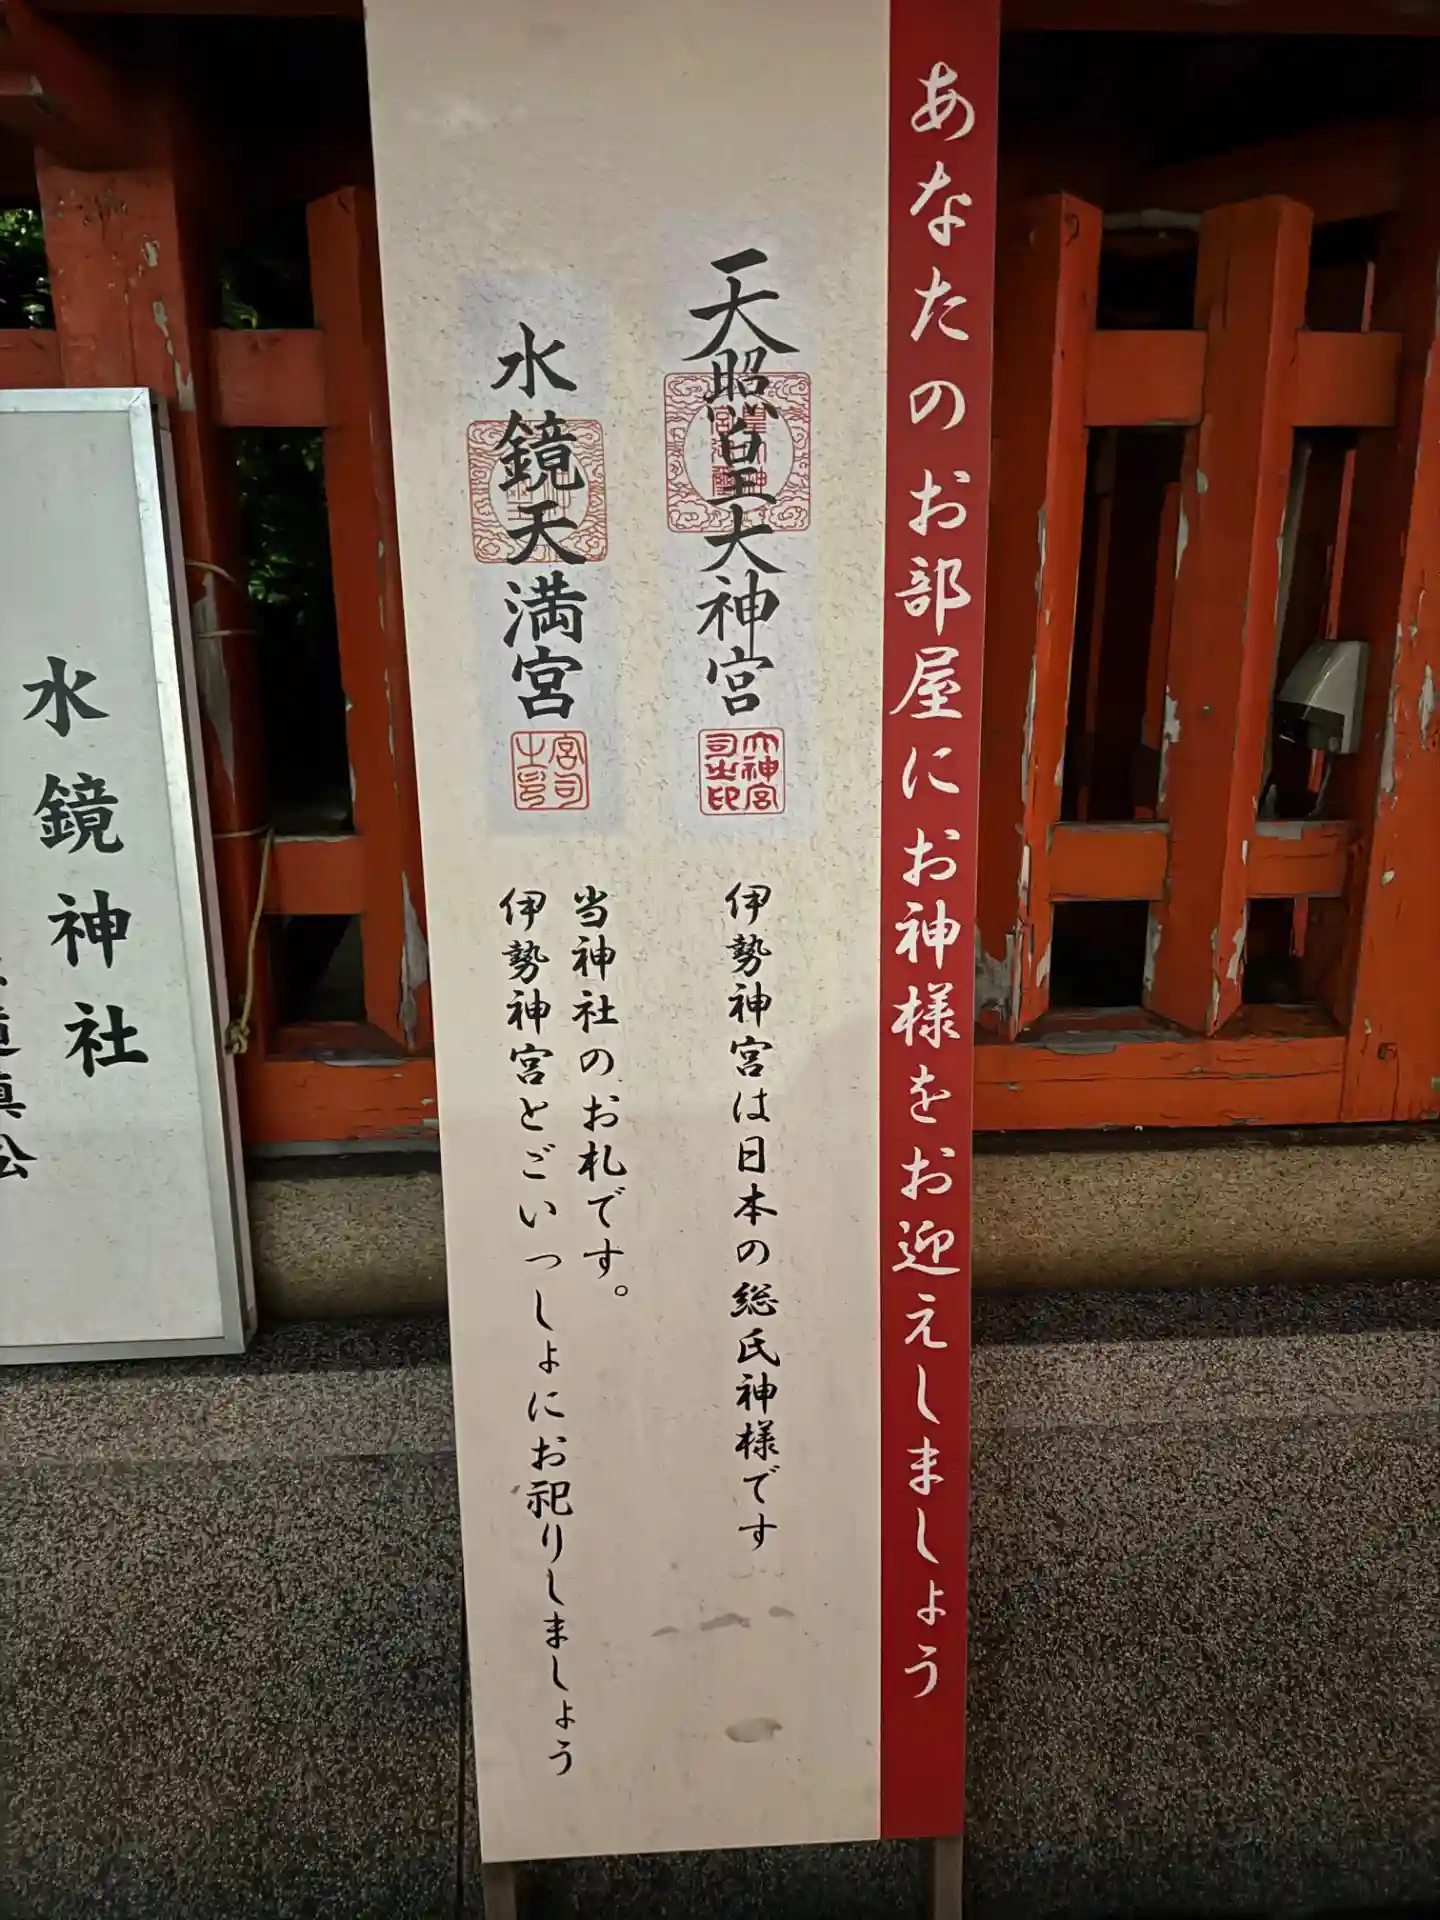 あなたのお部屋にお神様をお迎えしましょう
天照皇大神宮
大神宮司之印
伊勢神宮は日本の総氏神様です
水鏡天満宮
宮司之印
当神社のお札です。
伊勢神宮とごいっしょにお祀りしましょう
水鏡神社
道真公